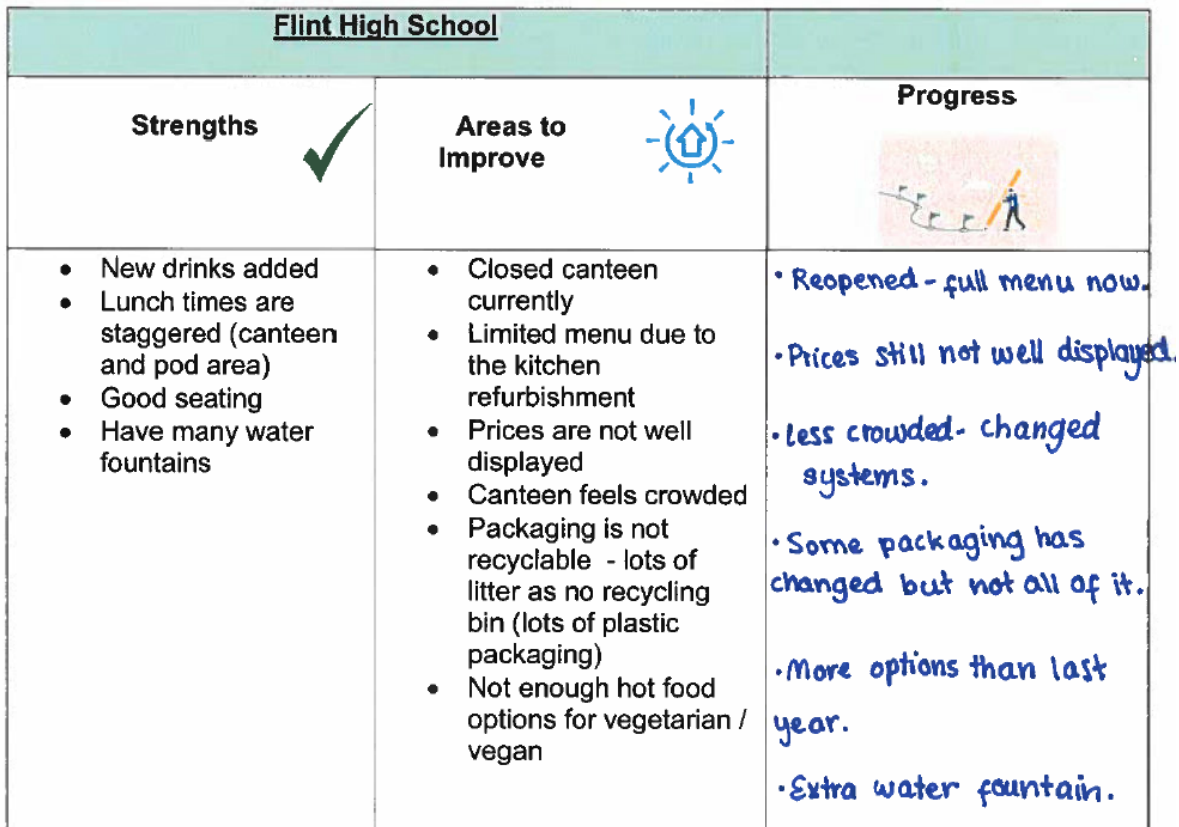 Flint High School
Strengths
Areas to
Improve
Progress
• New drinks added
• Lunch times are
staggered (canteen
and pod area)
• Good seating
• Have many water
fountains
• Closed canteen
currently
• Limited menu due to
the kitchen
refurbishment
• Prices are not well
displayed
• Canteen feels crowded
• Packaging is not
recyclable - lots of
litter as no recycling
bin (lots of plastic
packaging)
• Not enough hot food
options for vegetarian /
vegan
• Reopened - full menu now.
• Prices still not well displayed.
• Less crowded - changed
systems.
• Some packaging has
changed but not all of it.
• More options than last
year.
• Extra water fountain.